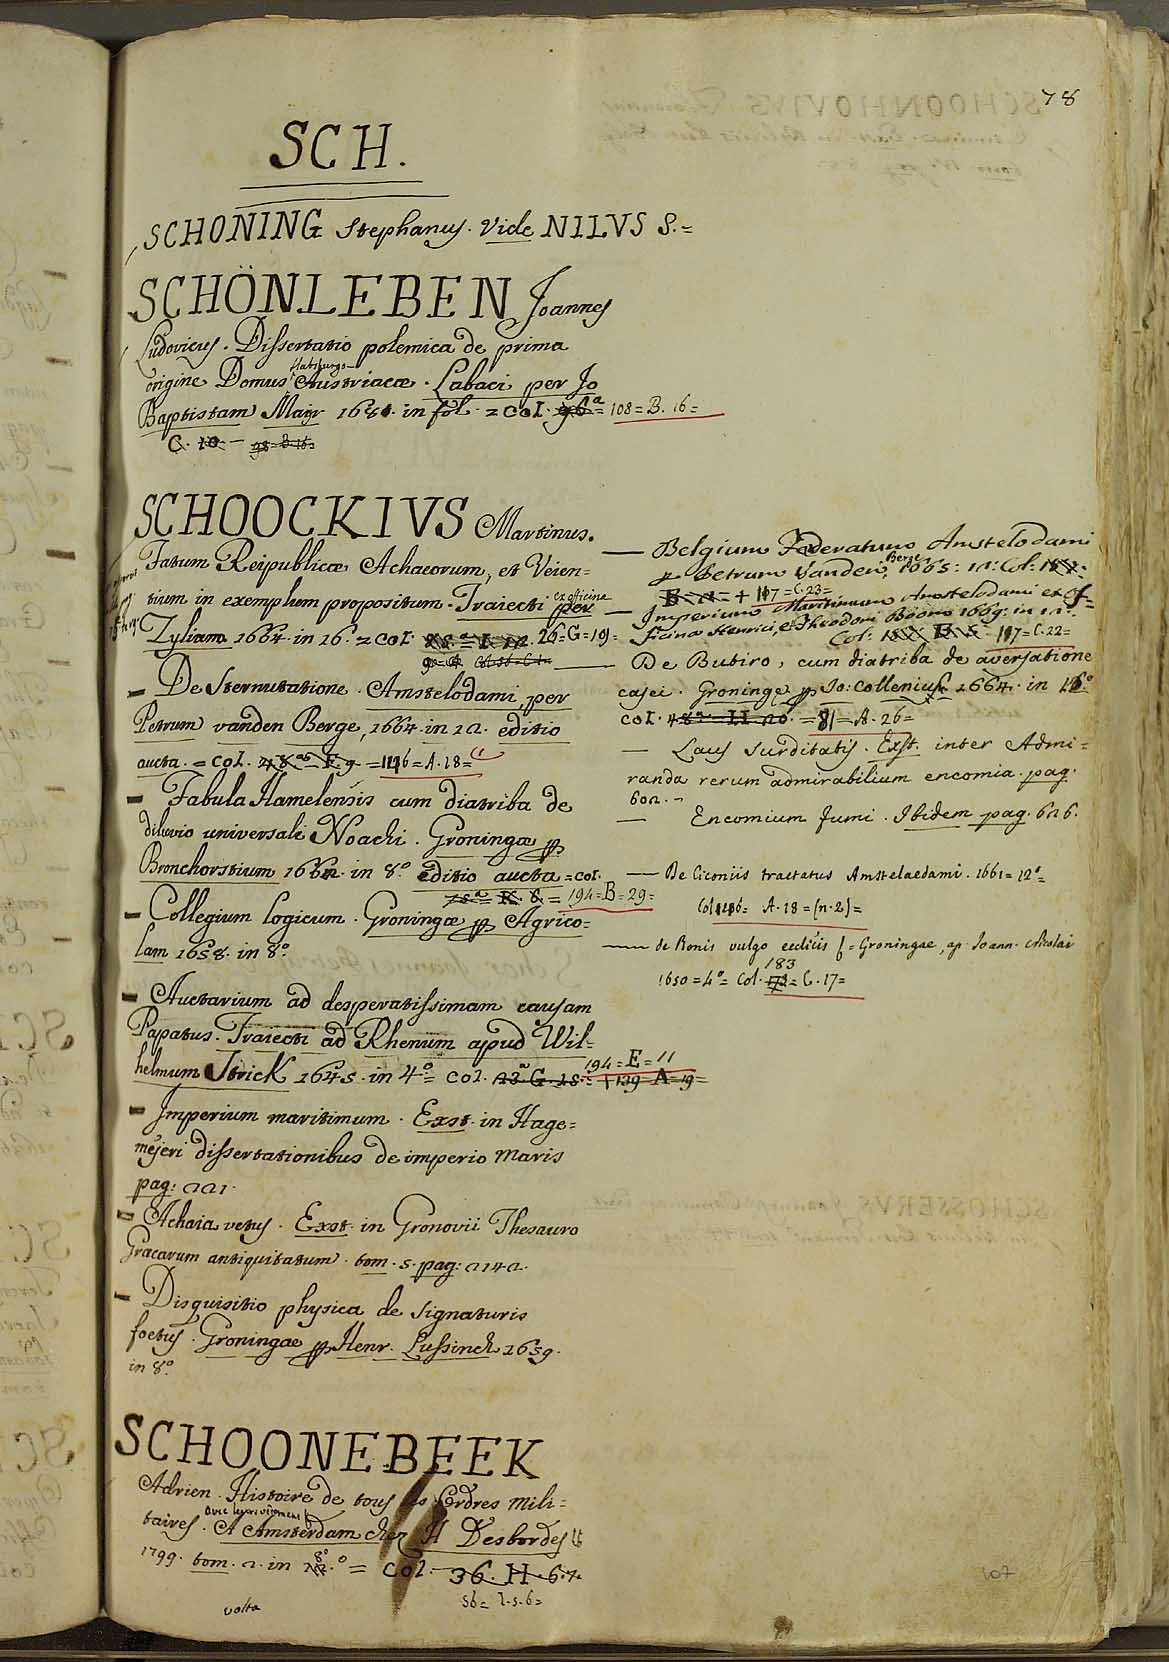 78
SCH.
SCHONING Stephanus. Vide NILVS S.=
SCHÖNLEBEN Joannes
Ludovicus. Dissertatio polemica de prima
Habsburgo-
origine Domus Austriacæ. Labaci per Jo
Baptistam Mayr 1680. in fol. = col. 108=B.16=
C. 10
SCHOOCKIVS Martinus.
Fatum Reipublicæ Achaeorum, et Veien=
tium in exemplum propositum. Traiecti ex officina per
Zylium 1664. in 16. = col. 26=G=19=
— De Sternutatione. Amstelodami, per
Petrum vanden Berge, 1664. in 12. editio
aucta. = col. =1126=A.18=
— Fabula Hamelensis cum diatriba de
diluvio universali Noachi. Groningæ p
Bronchorstium 1662. in 8.° editio aucta = col.
194=B=29=
— Collegium logicum. Groningæ p Agrico=
lam 1658. in 8.°
— Auctarium ad desperatissimam causam
Papatus. Traiecti ad Rhenum apud Wil=
helmum Strick 1645. in 4.°= col. 194=E=11
— Imperium maritimum. Exst. in Hage=
mejeri dissertationibus de imperio maris
pag: 221.
— Achaia vetus. Exst. in Gronovii Thesauro
Græcarum antiquitatum. tom. 5. pag: 2142.
— Disquisitio physica de signaturis
foetus. Groningae p Henr. Lussinch 1659.
in 8.°
— Belgium Fœderatum Amstelodami
p Petrum Vanden Berge, 1665: 12: Col:
117=C.23=
— Imperium Maritimum Amstelodami ex of=
ficina Henrici, e Theodori Boom 1669: in 12:
Col: 117=C.22=
— De Butiro, cum diatriba de aversatione
casei. Groningę p Io: Collenium 1664. in 12.°
col. =81=A.26=
— Laus Surditatis. Exst. inter Admi=
randa rerum admirabilium encomia. pag.
602.
— Encomium fumi. Ibidem pag. 626.
— De Ciconiis tractatus Amstelaedami. 1661=12°=
A.18=(n.2)=
— de Bonis vulgo ecclēiis f=Groningae, ap. Ioann. Nicolai
1650=4°= Col. 183 = C.17=
SCHOONEBEEK
Adrien. Histoire de tous les Ordres mili=
taires. A Amsterdam chez H Desbordes
1799. tom. 2. in 8° = Col. 36. H. 6.7.
56= 1.5.6=
volta
107